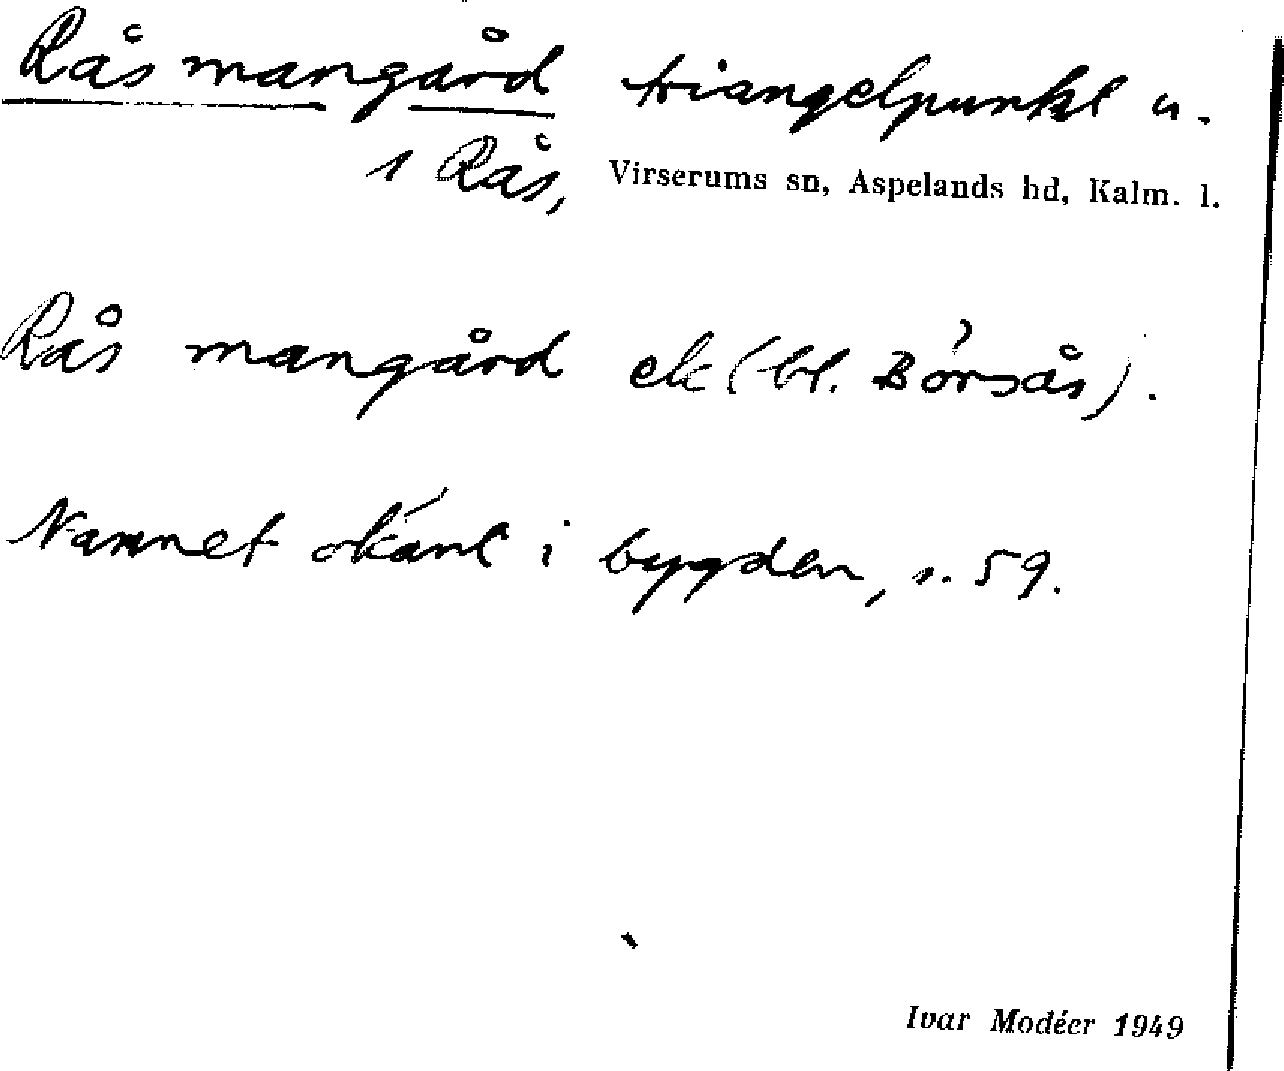 Råsmangård triangelpunkt u.
1 Rås, Virserums sn, Aspelands hd, Kalm. l.
Rås mangård ek (bl. Börsås).
Namnet okänt i bygden, s. 59.
Ivar Modéer 1949